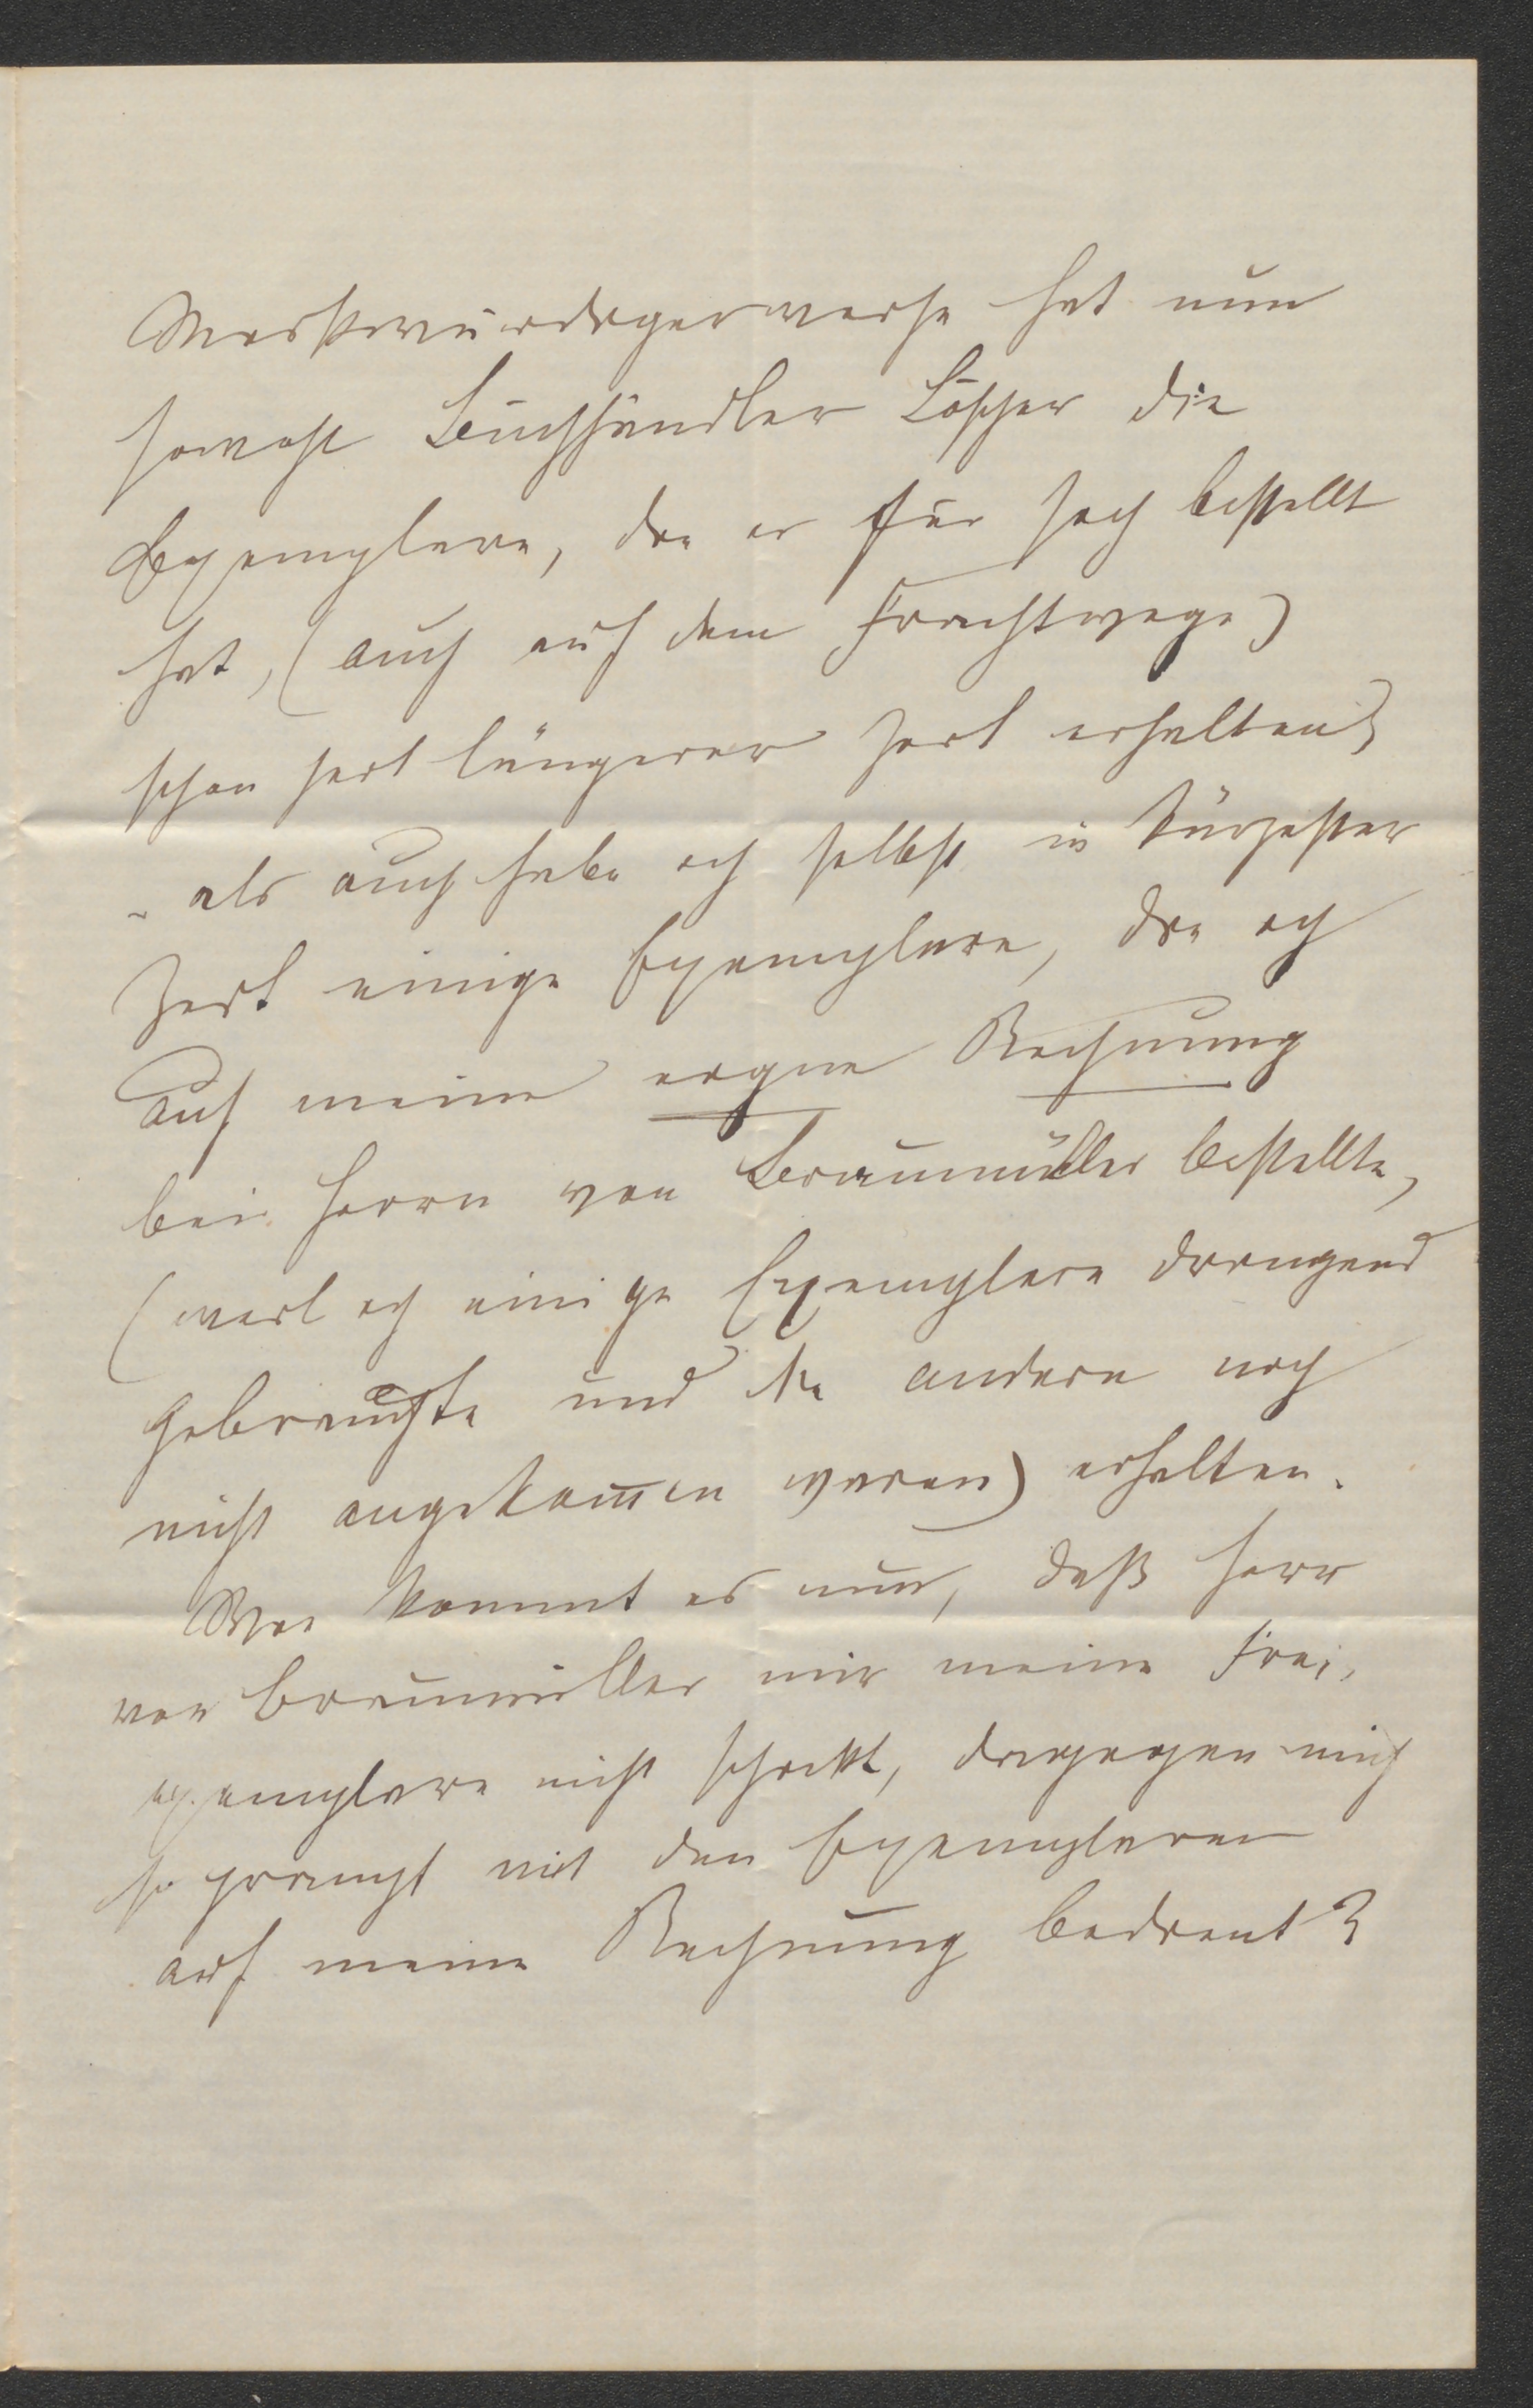 Merkwürdigerweise hat nun
sowohl Buchhändler Löscher die
Exemplare, die er für sich bestellt
hat, (auch auf dem Frachtwege)
schon seit längerer Zeit erhalten,
– als auch habe ich selbst in kürzester
Zeit einige Exemplare, die ich
auf meine eigne Rechnung
bei Herrn von Braumüller bestellte,
(weil ich einige Exemplare dringend
gebrauchte und die andern noch
nicht angekom̅en waren) erhalten.
Wie kommt es nun, daß Herr
von Braumüller mir meine Frei-
exemplare nicht schickt, dagegen mich
so prompt mit den Exemplaren
auf meine Rechnung bedient?